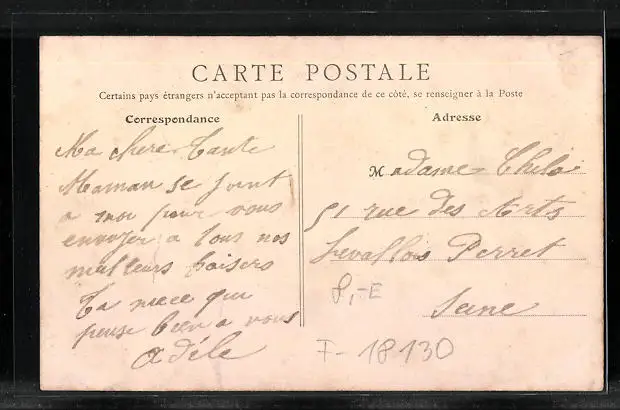 CARTE POSTALE
Certains pays étrangers n'acceptant pas la correspondance de ce côté, se renseigner à la Poste
Correspondance
Ma chere Tante
Maman se joint
a moi pour vous
envoyer a tous nos
meilleurs baisers
Ta niece qui
pense bien a vous
Adèle
Adresse
Madame
51 rue des Arts
Levallois Perret
Seine
8,-E
F-18130